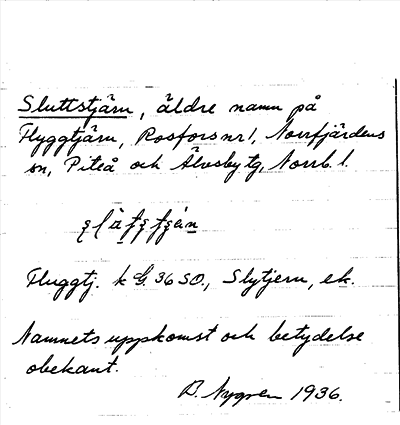 Sluttstjärn, äldre namn på
Flyggtjärn, Rosfors nr 1, Norrfjärdens
sn, Piteå och Älvsby tg, Norrb. l.
Fluggtj. k G. 36 SO., Slytjern, ek.
Namnets uppkomst och betydelse
obekant.
D. Nygren 1936.